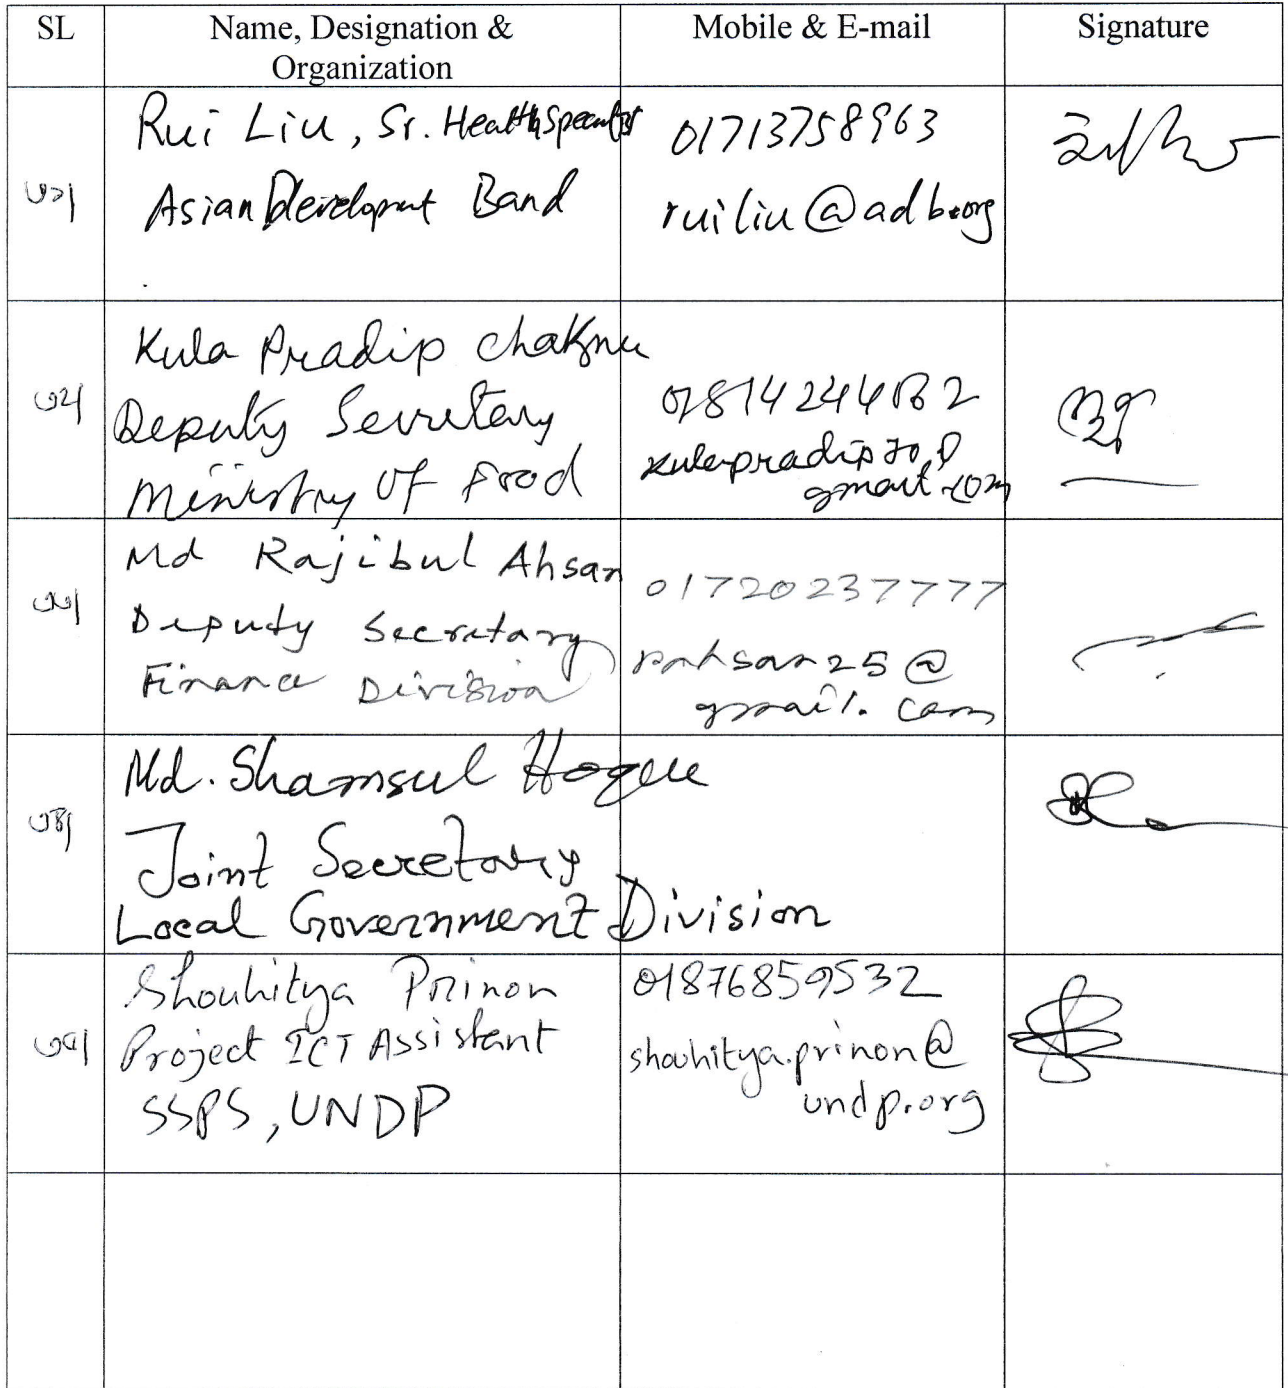 SL
Name, Designation &
Organization
Mobile & E-mail
Signature
৩১।
Rui Liu, Sr. Health Specialist
Asian Development Band
01713758963
ruiliu@adb.org
৩২।
Kula Pradip Chakma
Deputy Secretary
Ministry Of Food
gmail.com
৩৩।
Md Rajibul Ahsan
Deputy Secretary
Finance Division
01720237777
rahsan25@
gmail.com
৩৪।
Md. Shamsul Hoque
Joint Secretary
Local Government Division
৩৫।
Shouhitya Prinon
Project ICT Assistant
SSPS, UNDP
01876859532
shouhitya.prinon@
undp.org